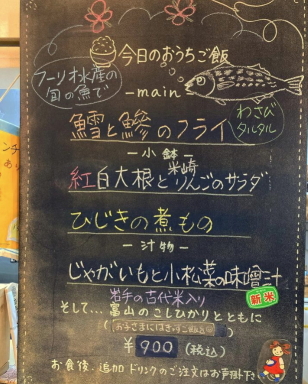 今日のおうちご飯
フーリオ水産の
旬の魚で
-main-
鱈と鯵のフライ
わさび
タルタル
-小鉢-
米崎
紅白大根とりんごのサラダ
ひじきの煮もの
-汁物-
じゃがいもと小松菜の味噌汁
新米
岩手の古代米入り
そして…富山のこしひかりとともに
¥900(税込)
お食後、追加ドリンクのご注文はお声掛け下さい